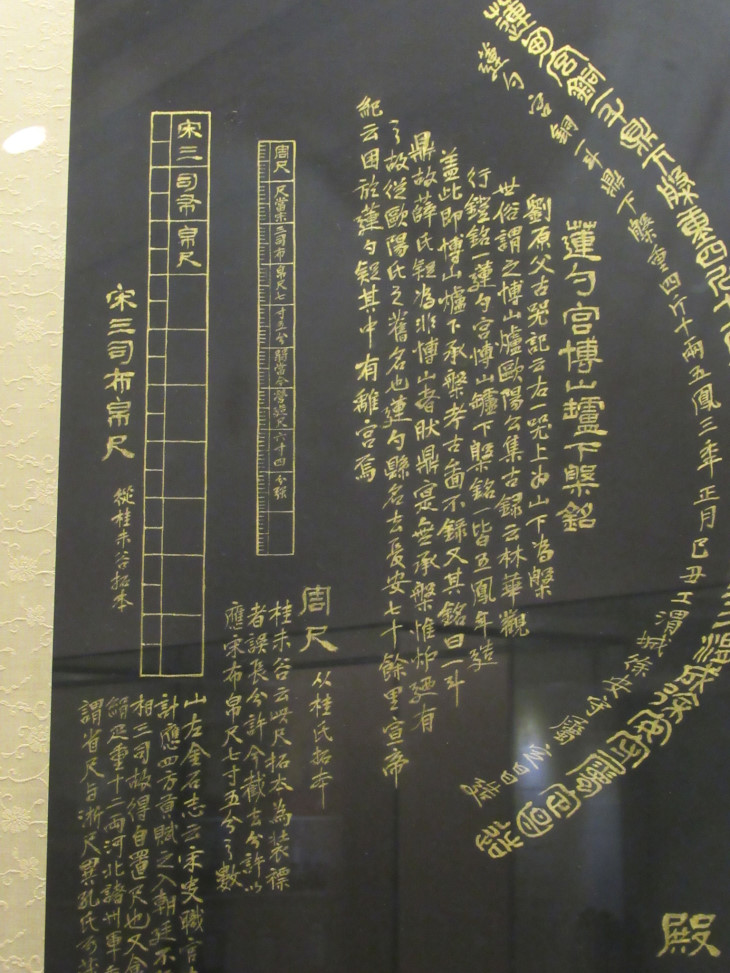 蓮勺宮銅一斗鼎下槃重四斤十兩五鳳三年正月己丑工渭城徐安守屬
蓮勺宮博山爐下槃銘
劉原父古器記云右一器上為山下為槃
世俗謂之博山爐歐陽公集古錄云林華觀
行鐙銘一蓮勺宮博山爐下槃銘一皆五鳳年造
蓋此即博山爐下承槃考古圖不錄又其銘曰一斗
鼎故薛氏疑為非博山者狀鼎寔無承槃惟爐有
之故從歐陽氏之舊名也蓮勺縣名去長安七十餘里宣帝
紀云困於蓮勺疑其中有離宮焉
殿
周尺 尺當宋三司布帛尺七寸五分 當今營造尺六寸四分强
周尺 从桂氏拓本
桂未谷云此尺拓本為裝褾
者誤長分許今截去分許以
應宋布帛尺七寸五分之數
宋三司布帛尺
宋三司布帛尺 從桂未谷拓本
山左金石志云宋史職官
計應四方貢賦之入朝廷不
相三司故得自置尺也又
絹疋重十二兩河北諸州軍
謂省尺与淛尺異孔氏